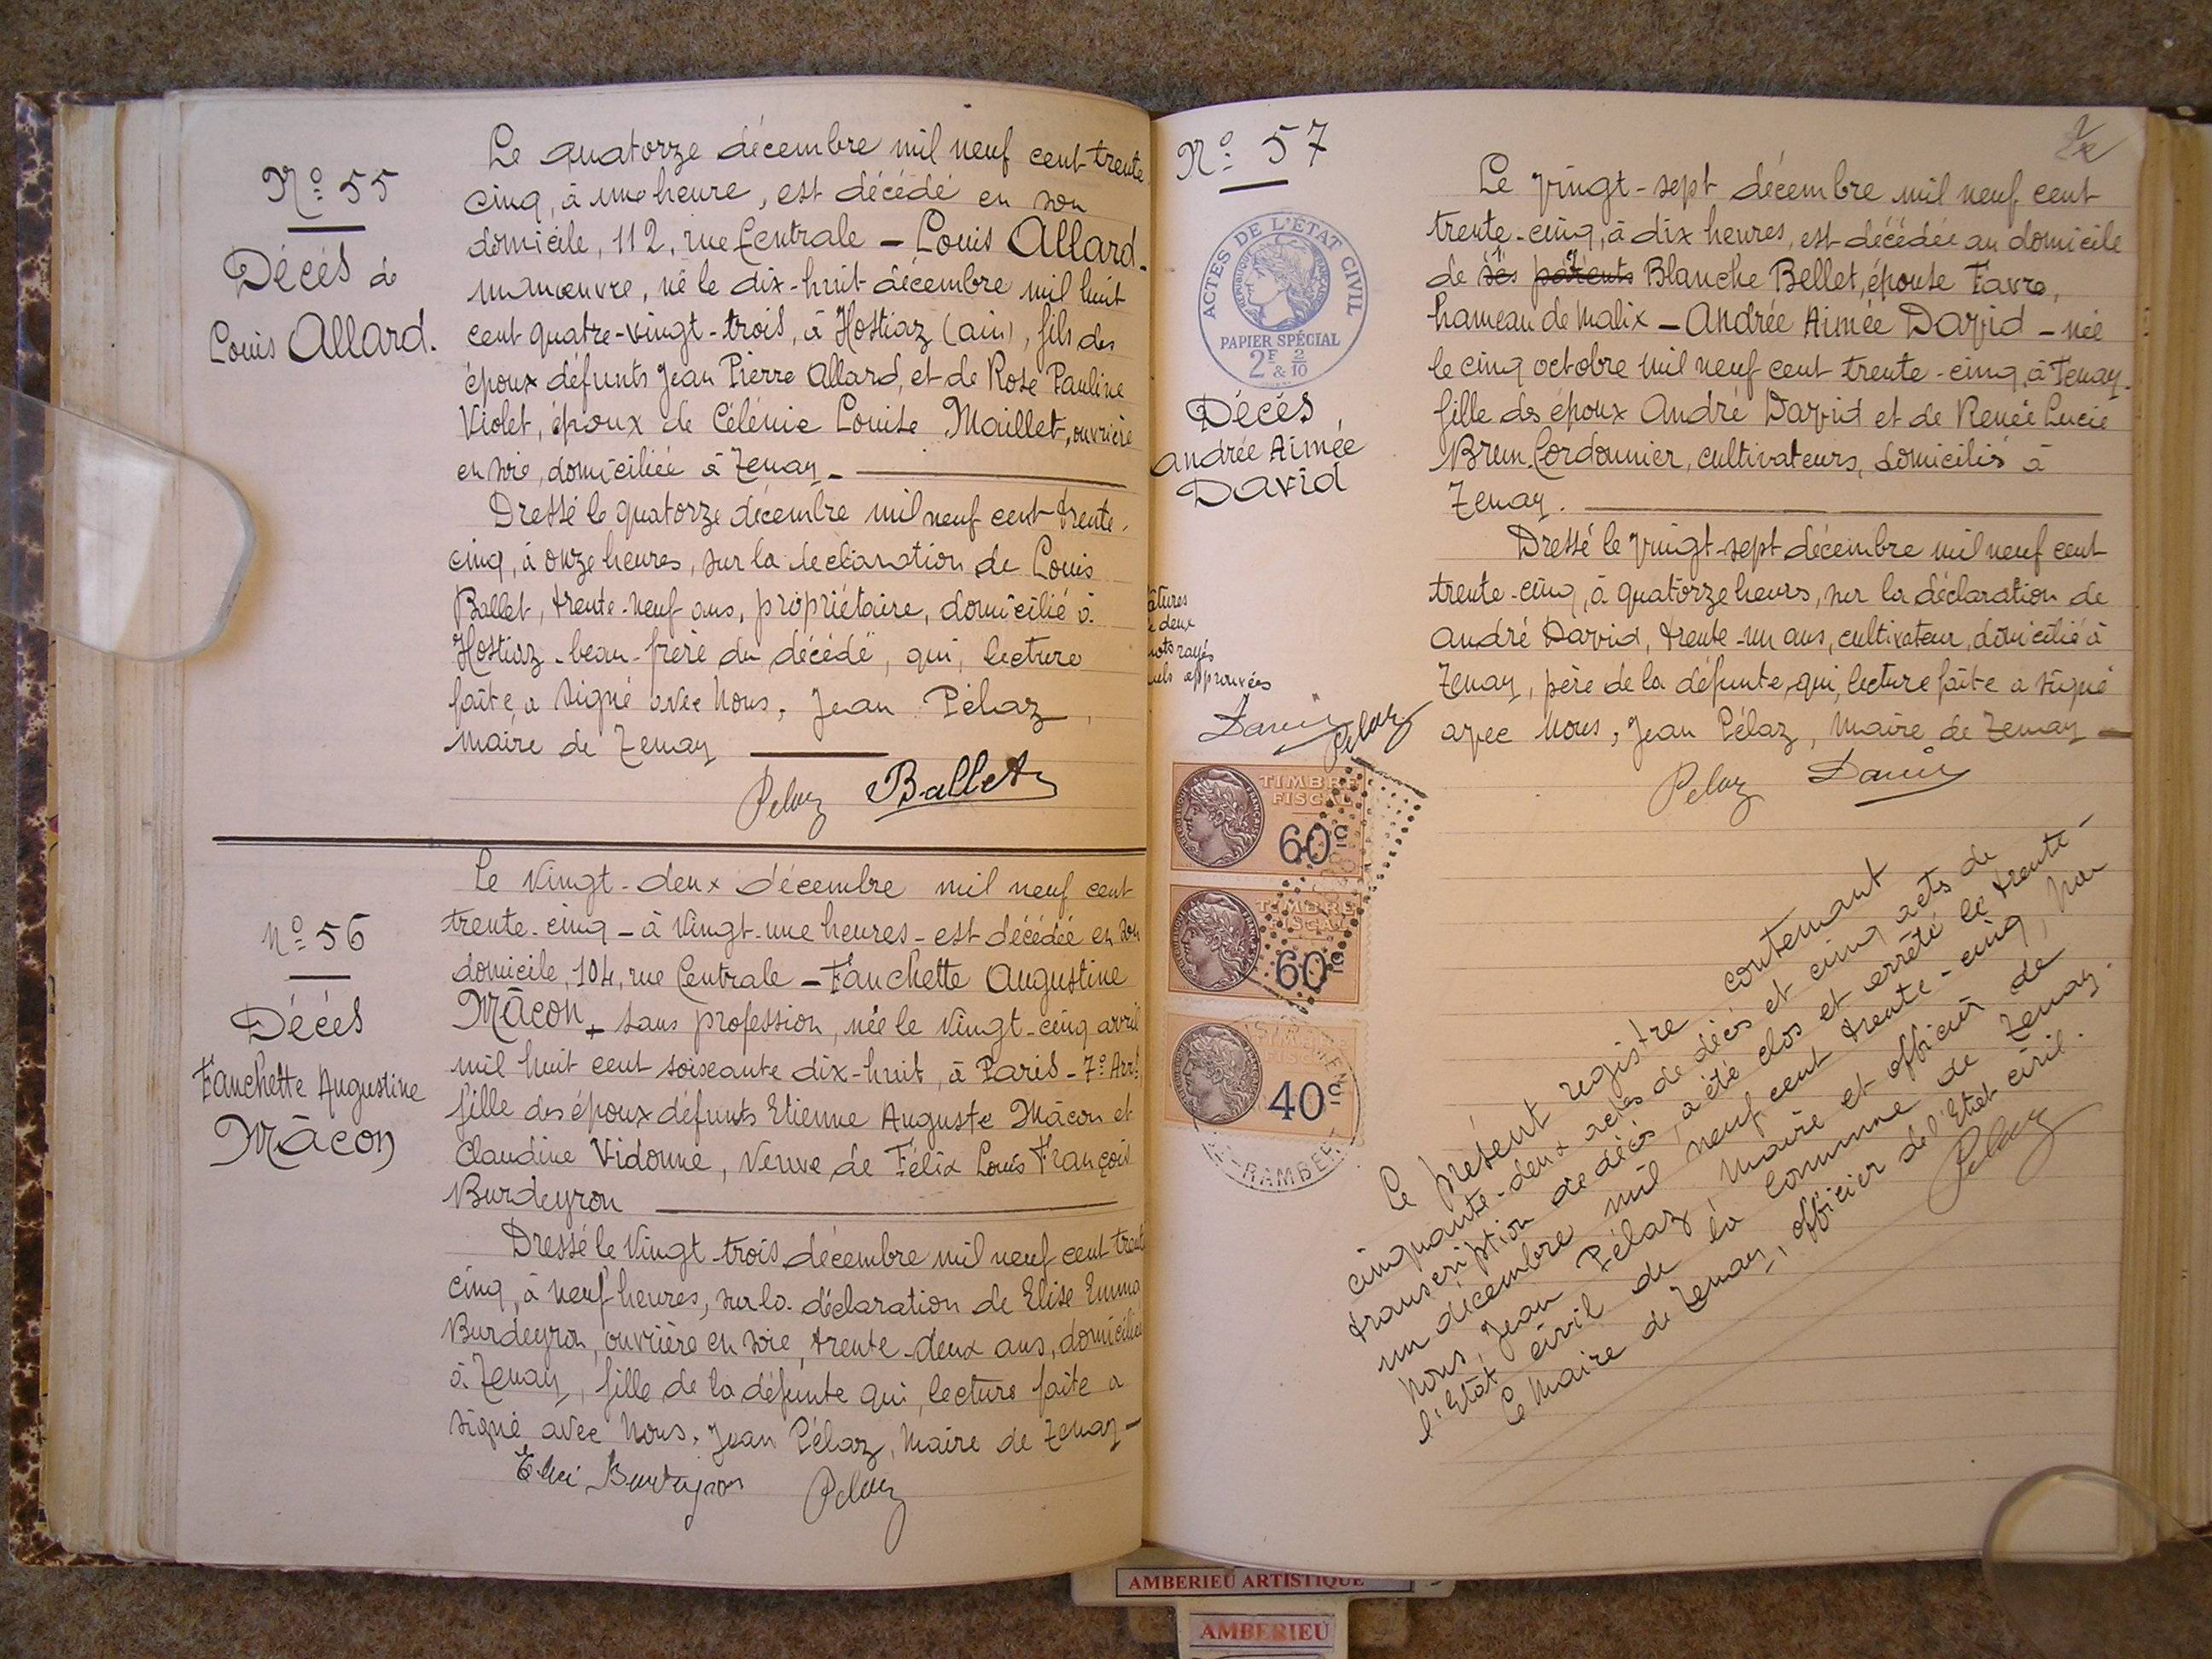 N° 55
Décès de
Louis Allard.
Le quatorze décembre mil neuf cent trente
cinq, à une heure, est décédé en son
domicile, 112, rue Centrale – Louis Allard –
manœuvre, né le dix-huit décembre mil huit
cent quatre-vingt-trois, à Hostiaz (ain), fils des
époux défunts Jean Pierre Allard, et de Rose Pauline
Violet, époux de Célénie Louise Maillet, ouvrière
en soie, domiciliée à Tenay –
Dressé le quatorze décembre mil neuf cent trente-
cinq, à onze heures, sur la declaration de Louis
Ballet, trente-neuf ans, propriétaire, domicilié à
Hostiaz - beau-frère du décédé, qui, lecture
faite, a signé avec Nous, Jean Pélaz,
Maire de Tenay
Pelaz Ballet
N° 56
Décès
Fanchette Augustine
Mâcon
Le Vingt-deux décembre mil neuf cent
trente-cinq – à Vingt-une heures – est décédée en son
domicile, 104, rue Centrale – Fanchette Augustine
Mâcon, sans profession, née le Vingt-cinq avril
mil huit cent soixante dix-huit, à Paris – 7e Arrt
fille des époux défunts Etienne Auguste Mâcon et
Claudine Vidonne, Veuve de Félix Louis François
Burdeyron
Dressé le Vingt-trois décembre mil neuf cent trente
cinq, à neuf heures, sur la déclaration de Elise Emma
Burdeyron, ouvrière en soie, trente-deux ans, domiciliée
à Tenay, fille de la défunte qui, lecture faite a
signé avec Nous, Jean Pélaz, Maire de Tenay –
Burdeyron Pelaz
N° 57
ACTES DE L'ÉTAT CIVIL
RÉPUBLIQUE FRANÇAISE
PAPIER SPÉCIAL
2F & 2/10
Décès
Andrée Aimée
David
Le vingt-sept décembre mil neuf cent
trente-cinq, à dix heures, est décédée au domicile
de ses parents Blanche Bellet, épouse Favre,
hameau de Malix – Andrée Aimée David – née
le cinq octobre mil neuf cent trente-cinq, à Tenay –
fille des époux André David et de Renée Lucie
Brun Cordonnier, cultivateurs, domiciliés à
Tenay.
Dressé le vingt-sept décembre mil neuf cent
trente-cinq, à quatorze heures, sur la déclaration de
André David, trente-un ans, cultivateur, domicilié à
Tenay, père de la défunte, qui, lecture faite a signé
avec Nous, Jean Pélaz, Maire de Tenay –
Pelaz David
deux
rayés
approuvées
David Pelaz
TIMBRE
FISCAL
60c
TIMBRE
FISCAL
60c
FISCAL
40c
RAMBER
Le présent registre contenant
cinquante-deux actes de décès et cinq actes de
transcription de décès, a été clos et arrêté le trente-
un décembre mil neuf cent trente-cinq, par
nous, Jean Pélaz, maire et officier de
l'Etat civil de la commune de Tenay.
Le Maire de Tenay, officier de l'Etat civil.
Pelaz
AMBERIEU ARTISTIQUE
AMBERIEU